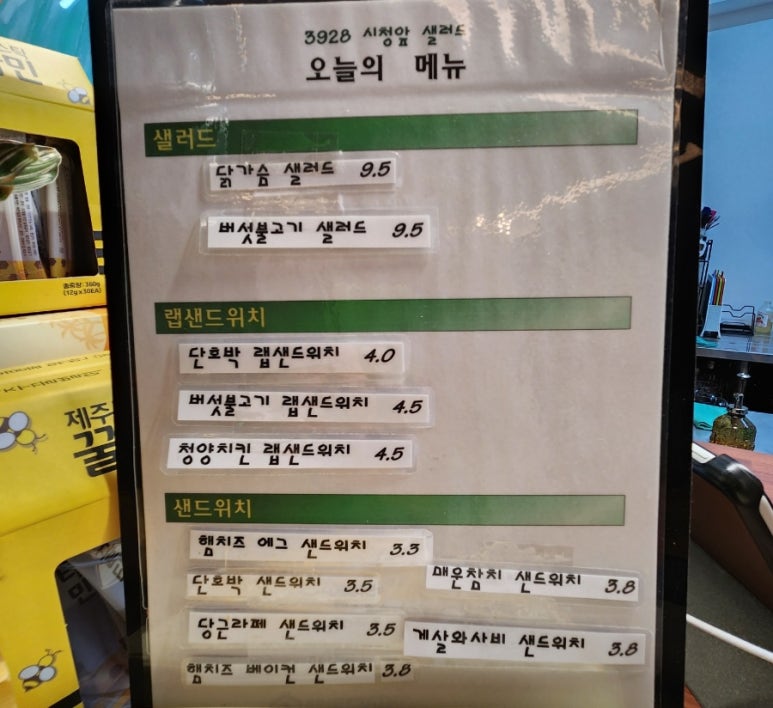 3928 시청앞 샐러드
오늘의 메뉴
샐러드
닭가슴 샐러드 9.5
버섯불고기 샐러드 9.5
랩샌드위치
단호박 랩샌드위치 4.0
버섯불고기 랩샌드위치 4.5
청양치킨 랩샌드위치 4.5
샌드위치
햄치즈 에그 샌드위치 3.3
단호박 샌드위치 3.5
매운참치 샌드위치 3.8
당근라페 샌드위치 3.5
게살와사비 샌드위치 3.8
햄치즈 베이컨 샌드위치 3.8
360g
(12g x 30EA)
제주
꿀